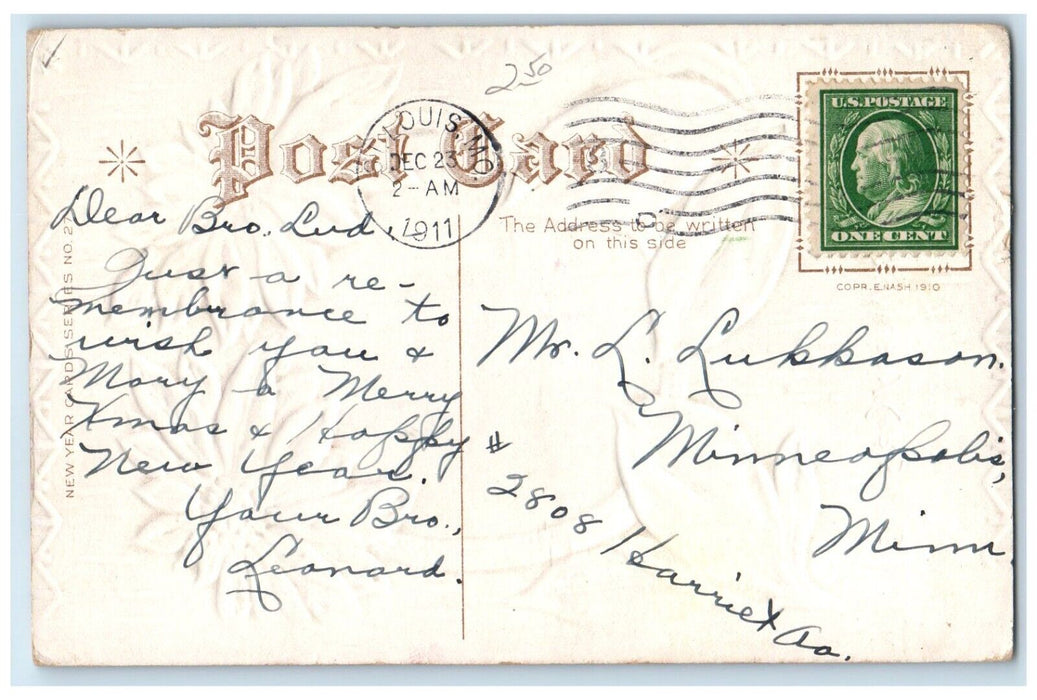 2 50
Post Card
LOUIS, MO
DEC 23
2-AM
1911
U.S. POSTAGE
ONE CENT
The Address to be written
on this side
COPR. E. NASH 1910
NEW YEAR CARDS SERIES NO. 2
Dear Bro. Lud,
Just a re-
membrance to
wish you &
Mary a Merry
Xmas & Happy
New Year.
Your Bro.,
Leonard.
Mr. L. Lukkason.
Minneapolis,
Minn
# 2808 Harriet Av.